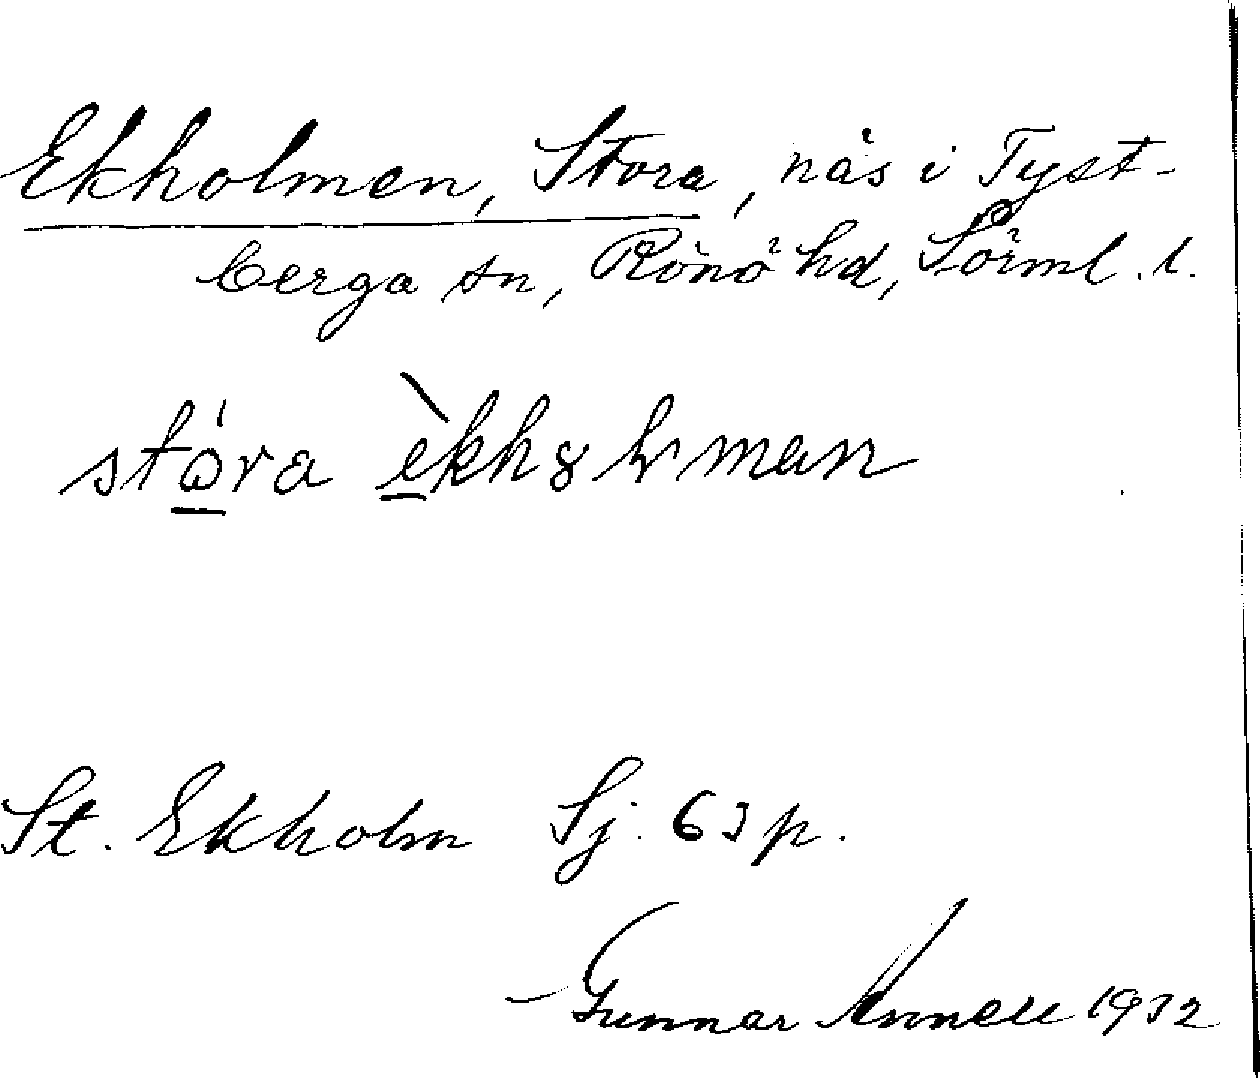 Ekholmen, Stora, näs i Tyst-
berga sn, Rönö hd, Sörml. l.
stóra èkh8lman
St. Ekholm Sj. 63 p.
Gunnar Annell 1932